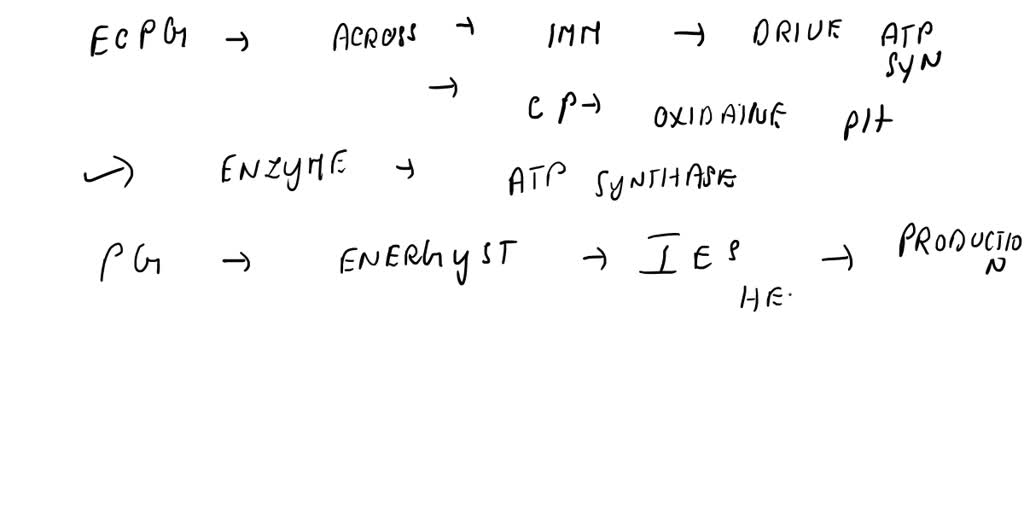 ECPG → ACROSS → IMM → DRIVE ATP SYN
→ CP → OXIDATIVE PH
→ ENZYME → ATP SYNTHASE
PG → ENERGY ST → IES → PRODUCTION
HE.